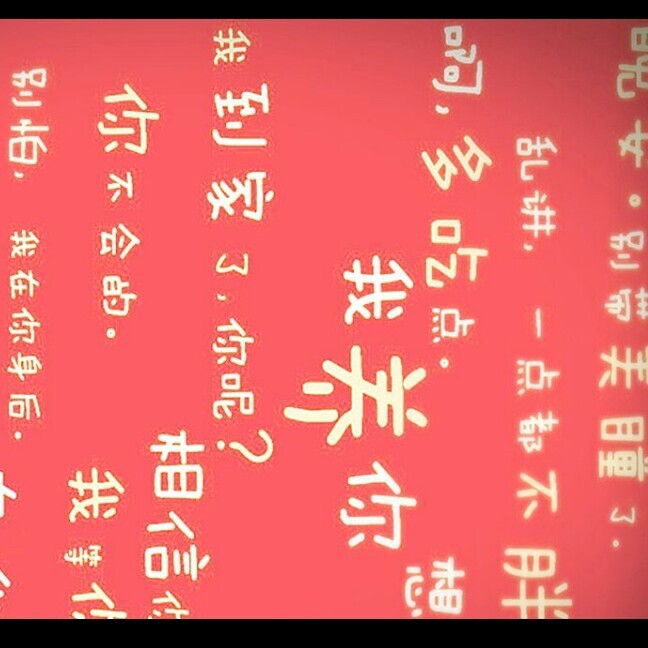 晚安。别带美瞳了。
乱讲，一点都不胖
啊，多吃点。
想
我养你
我到家了，你呢？
相信你
你不会的。
我等你
别怕，我在你身后。